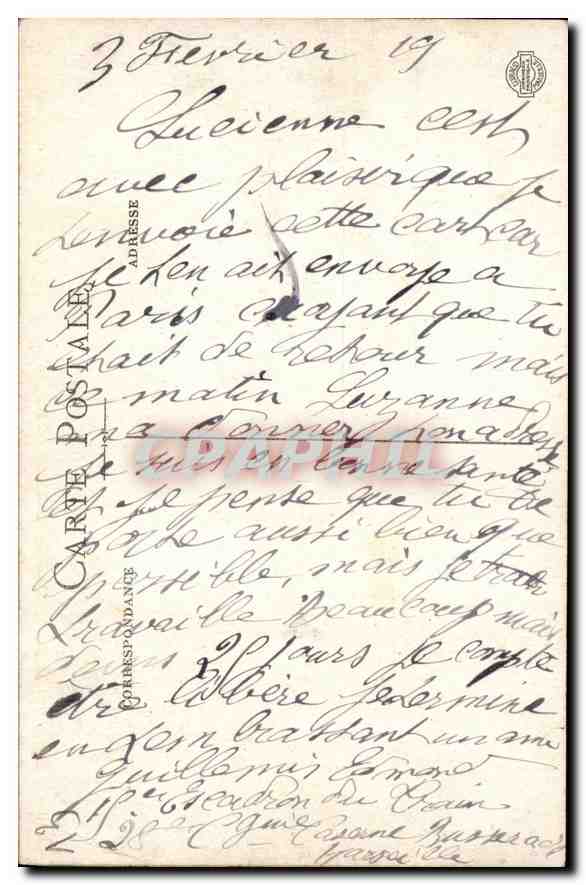 3 Fevrier 19
Lucienne cest
avec plaisir que je
t'envoie cette car car
je t'en ait envoye a
Paris croyant que tu
etait de retour mais
ce matin Suzanne
ma donner ton adress
Je suis en bonne santé
et je pense que tu te
porte aussi bien que
possible, mais je
travaille Beaucoup mais
dans 25 jours je compte
etre libere je termine
en t'embrassant un ami
Guillemis Edmond
15e Escadron du Train
28e Cgnie Caserne
Marseille
CARTE POSTALE
CORRESPONDANCE
ADRESSE
CPAPHIL